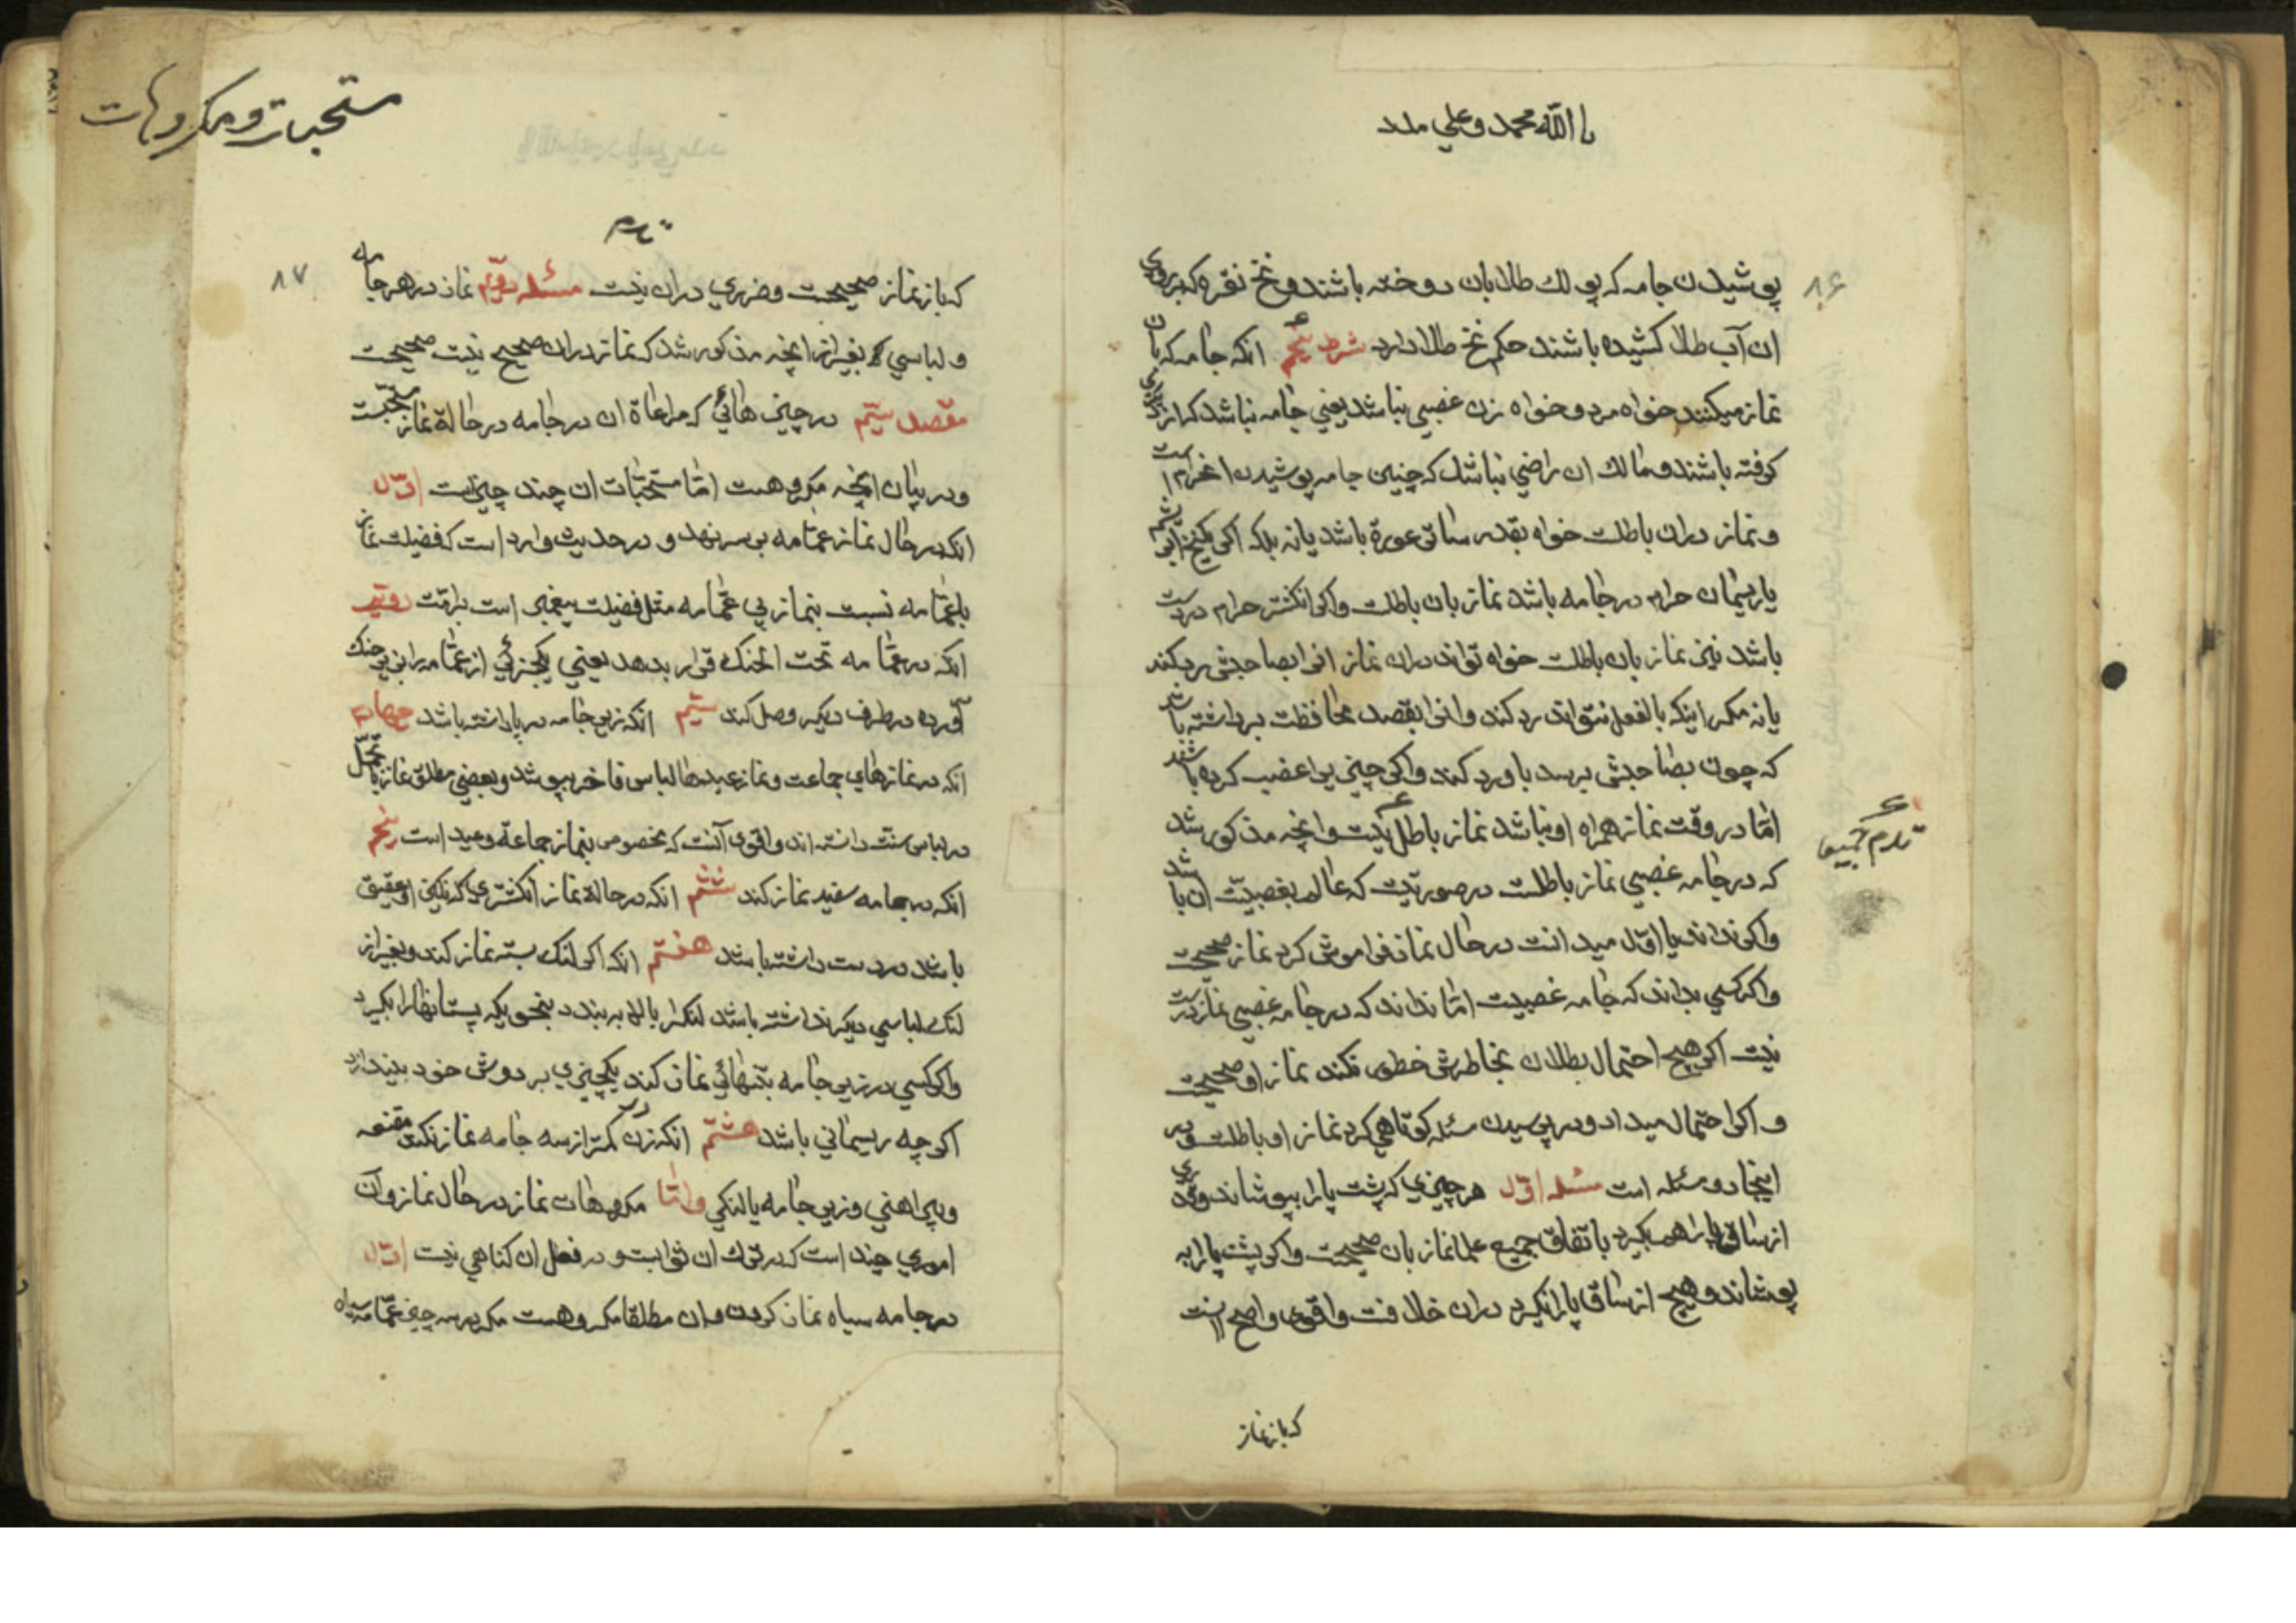 یا الله محمد و علی مدد
۸۶
پوشیدن جامه که پولك طلا بان دوخته باشند و نخ نقره که بر روی
ان آب طلا کشیده باشند حکم نخ طلا دارد شرط پنجم انکه جامه که بان
نماز میکنند خواه مرد و خواه زن غصبی نباشد یعنی جامه نباشد که از
کرفته باشند و مالك ان راضی نباشد که چنین جامه پوشیدن
و نماز دران باطلست خواه بقدر ساتر عورة باشد یا نه بلکه اکر
یا ریسمان حرام در جامه باشد نماز بان باطلست و اکر انکشتر حرام در دست
باشد نیز نماز بان باطلست خواه تواند دران نماز انرا بصاحبش رد کند
یا نه مکر اینکه بالفعل نتواند رد کند و انرا بقصد محافظت برداشته باشد
که چون بصاحبش برسد باو رد کند و اکر چیزی را غصب کرده باشند
امّا در وقت نماز همراه او نباشد نماز باطل نیست و انچه مذکور شد
که در جامه غصبی نماز باطلست در صورتیست که عالم بغصبیّت ان باشد
و اکر نداند یا اوّل میدانست در حال نماز فراموش کرد نماز صحیحست
و اکر کسی بداند که جامه غصبیست امّا نداند که در جامه غصبی نماز درست
نیست اکر هیچ احتمال بطلان بخاطرش خطور نکند نماز او صحیحست
و اکر احتمال میداد و در پرسیدن مسئله کوتاهی کرد نماز او باطلست و در
اینجا دو مسئله است مسئله اوّل هر چیزی که پشت پا را بپوشاند و قدری
از ساق پا را هم بکیرد باتفاق جمیع علما نماز بان صحیحست و اکر پشت پا را به
پوشاند و هیچ از ساق پا را نکیرد دران خلافست و اقوی و اصح اینست
که بان نماز
مستحبات و مکروهات
۸۷
که بان نماز صحیحست و ضرری دران نیست مسئله دویّم نماز در هر جامه
و لباسی که بغیر از انچه مذکور شد که نماز دران صحیح نیست صحیحست
مقصد سیّم در چیزهائی که مراعاة ان در جامه در حالة نماز مستحبّست
و در بیان انچه مکروهست امّا مستحبّات ان چند چیز است اوّل
انکه در حال نماز عمّامه بر سر نهد و در حدیث وارد است که فضیلت نماز
با عمّامه نسبت بنماز بی عمّامه مثل فضیلت پیغمبر است بر امّت دویّم
انکه در عمّامه تحت الحنك قرار بدهد یعنی یکجزئی از عمّامه را بزیر حنك
آورده در طرف دیکر وصل کند سیّم انکه زیر جامه در پا داشته باشد چهارم
انکه در نمازهای جماعت و نماز عیدها لباس فاخر بپوشد و بعضی مطلق نماز را تجمّل
در لباس سنّت دانسته اند و اقوی آنست که مخصوص بنماز جماعة و عید است پنجم
انکه در جامه سفید نماز کند ششم انکه در حالة نماز انکشتری که نکین او عقیق
باشد در دست داشته باشد هفتم انکه اکر لنك بسته نماز کند و بغیر از
لنك لباسی دیکر نداشته باشد لنك را بالا به بندد بنحویکه پستانها را بکیرد
و اکر کسی در زیر جامه بتنهائی نماز کند یکچیزی بر دوش خود بیندازد
اکر چه ریسمانی باشد هشتم انکه زن در کمتر از سه جامه نماز نکند مقنعه
و پیراهنی و زیر جامه یا لنکی و امّا مکروهات نماز در حال نماز و آن
اموری چند است که در ترك ان ثوابست و در فعل ان کناهی نیست اوّل
در جامه سیاه نماز کردن و ان مطلقا مکروهست مکر در سه چیز عمّامه سیاه